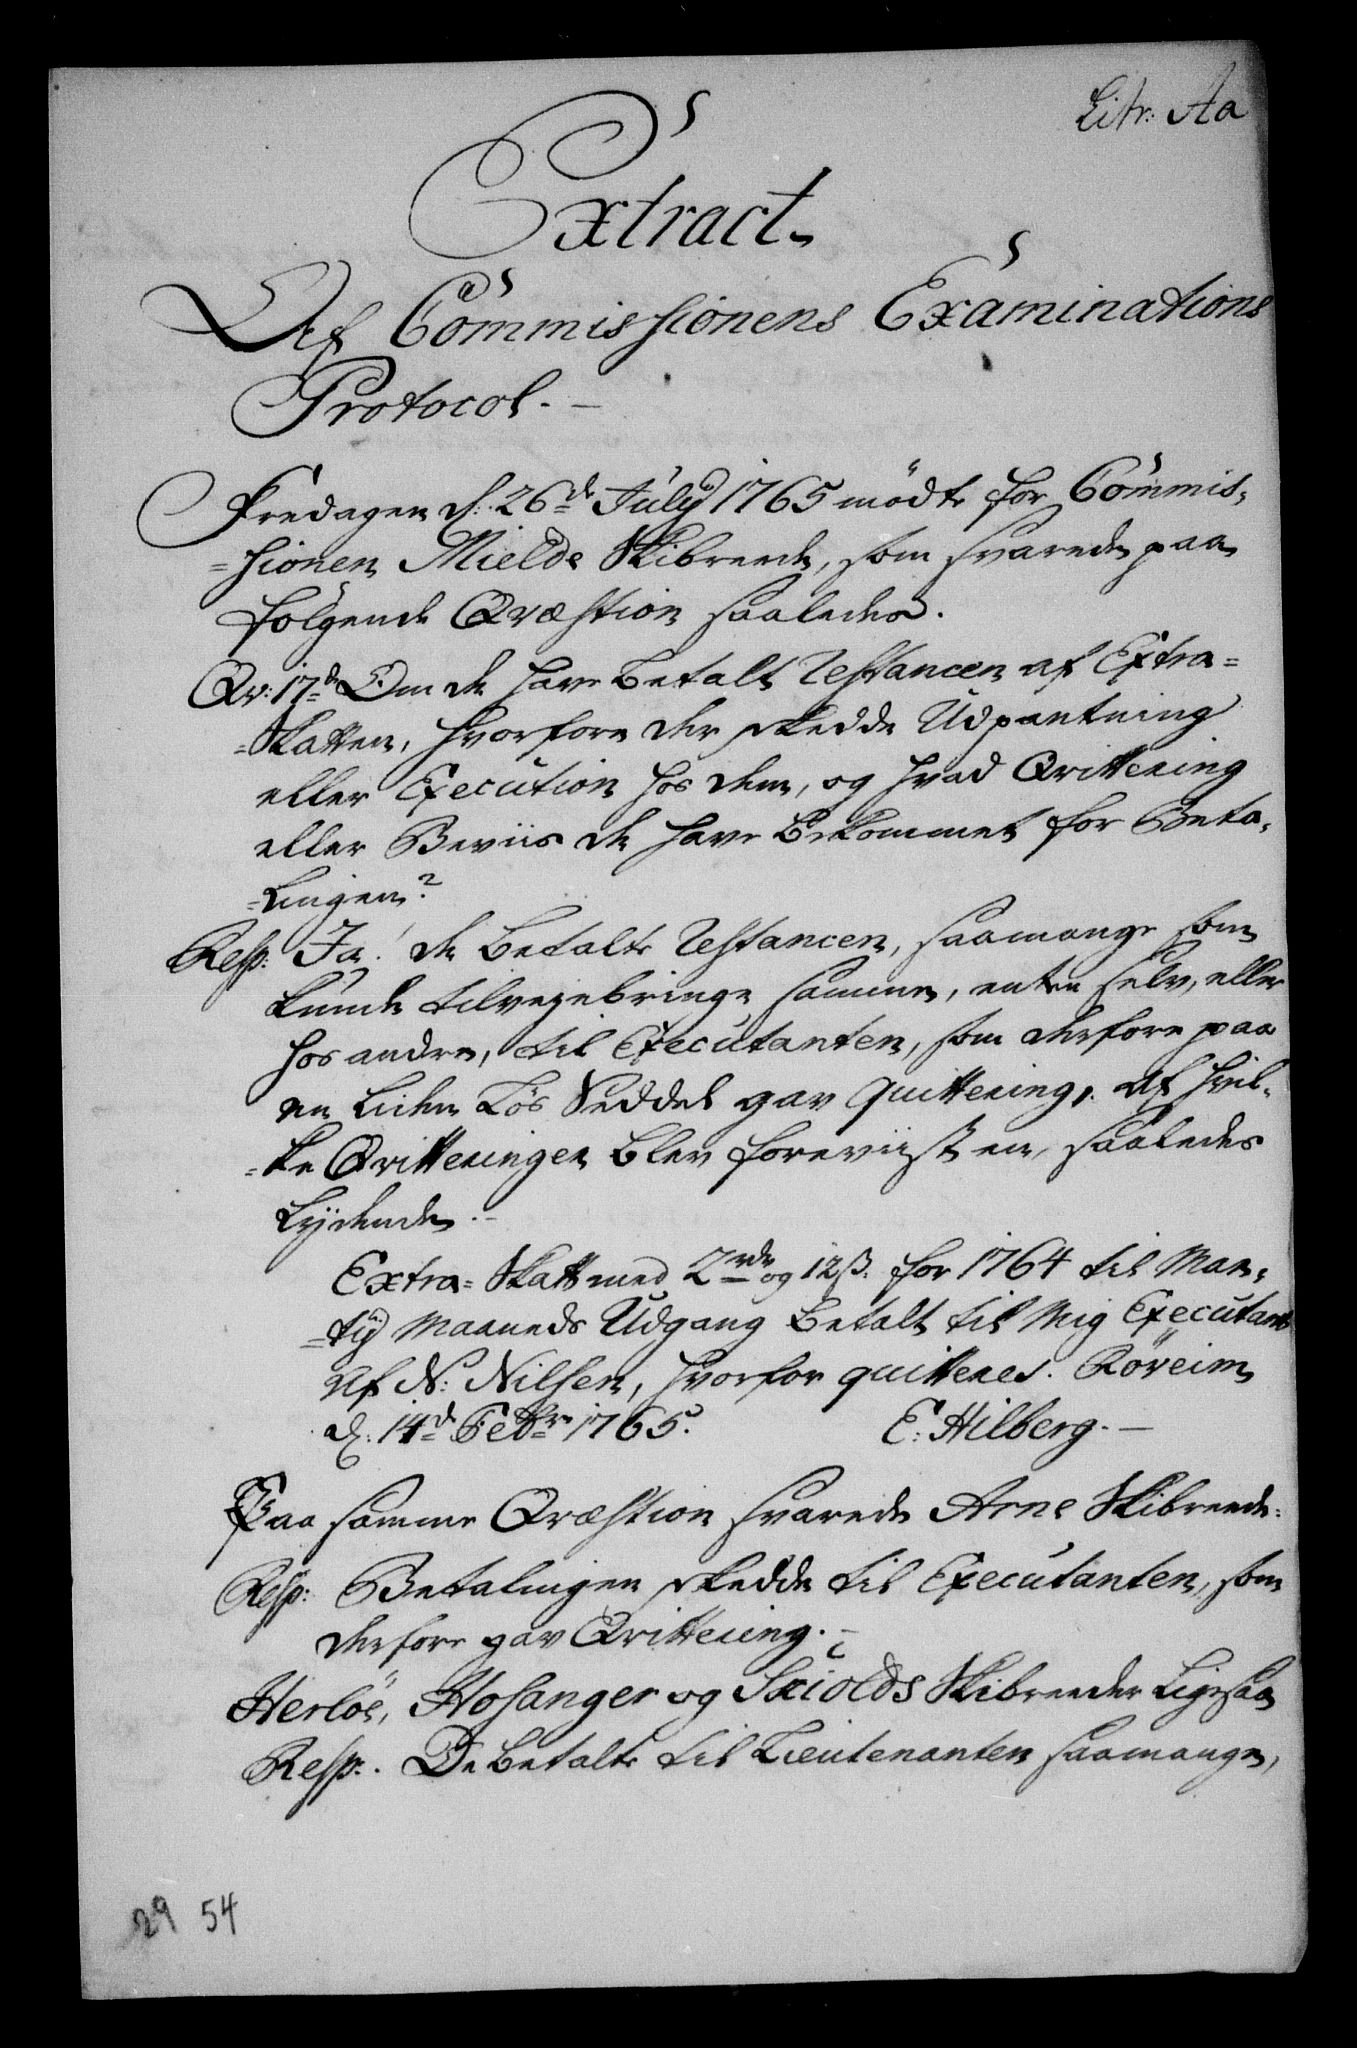 Litr: Aa
Extract.
Af Commissionens Examinations
Protocol. –
Fredagen d: 26de July 1765 mödte for Commis-
=sionen Mielde Skibreede, som svarede paa
følgende Qvæstion saaledes.
Qv: 17de Om de have betalt Restancen af Extra=
=Skatten, hvorfore der skedde Udpantning
eller Execution hos dem, og hvad Qvittering
eller Beviis de have bekommet for Beta-
=lingen?
Resp: Ja! de betalte Restancen, saamange som
kunde tilvejebringe samme, enten selv, eller
hos andre, til Executanten, som derfore paa
en liden løs Seddel gav quittering, af hvil-
=ke Qvitteringer blev foreviist en, saaledes
lydende. –
Extra=Skatt med 2rdr og 12ß. for 1764 til Mar-
=tij Maaneds Udgang betalt til Mig Executant
af N: Nilsen, hvorfor quitteres. Röreim
d. 14de Febr: 1765. E: Hilberg. –
Paa samme Qvæstion svarede Arne Skibreede:
Resp: Betalingen skedde til Executanten, som
derfore gav Qvittering. –
Herlöe, Hosanger og Skiolds Skibreeder ligesaa
Resp:. De betalte til Lieutenanten saamange,
29 54